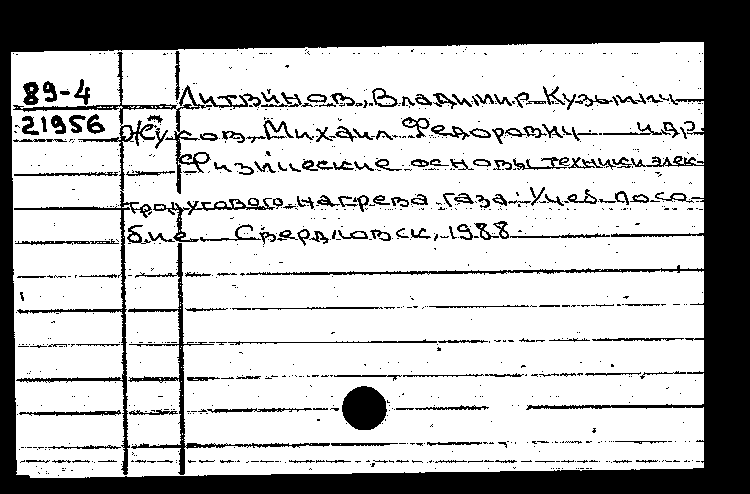 89-4 Литвинов, Владимир Кузьмич
21956 Жуков, Михаил Федорович и др.
Физические основы техники элек-
тродугового нагрева газа: Учеб. посо-
бие. Свердловск, 1988.